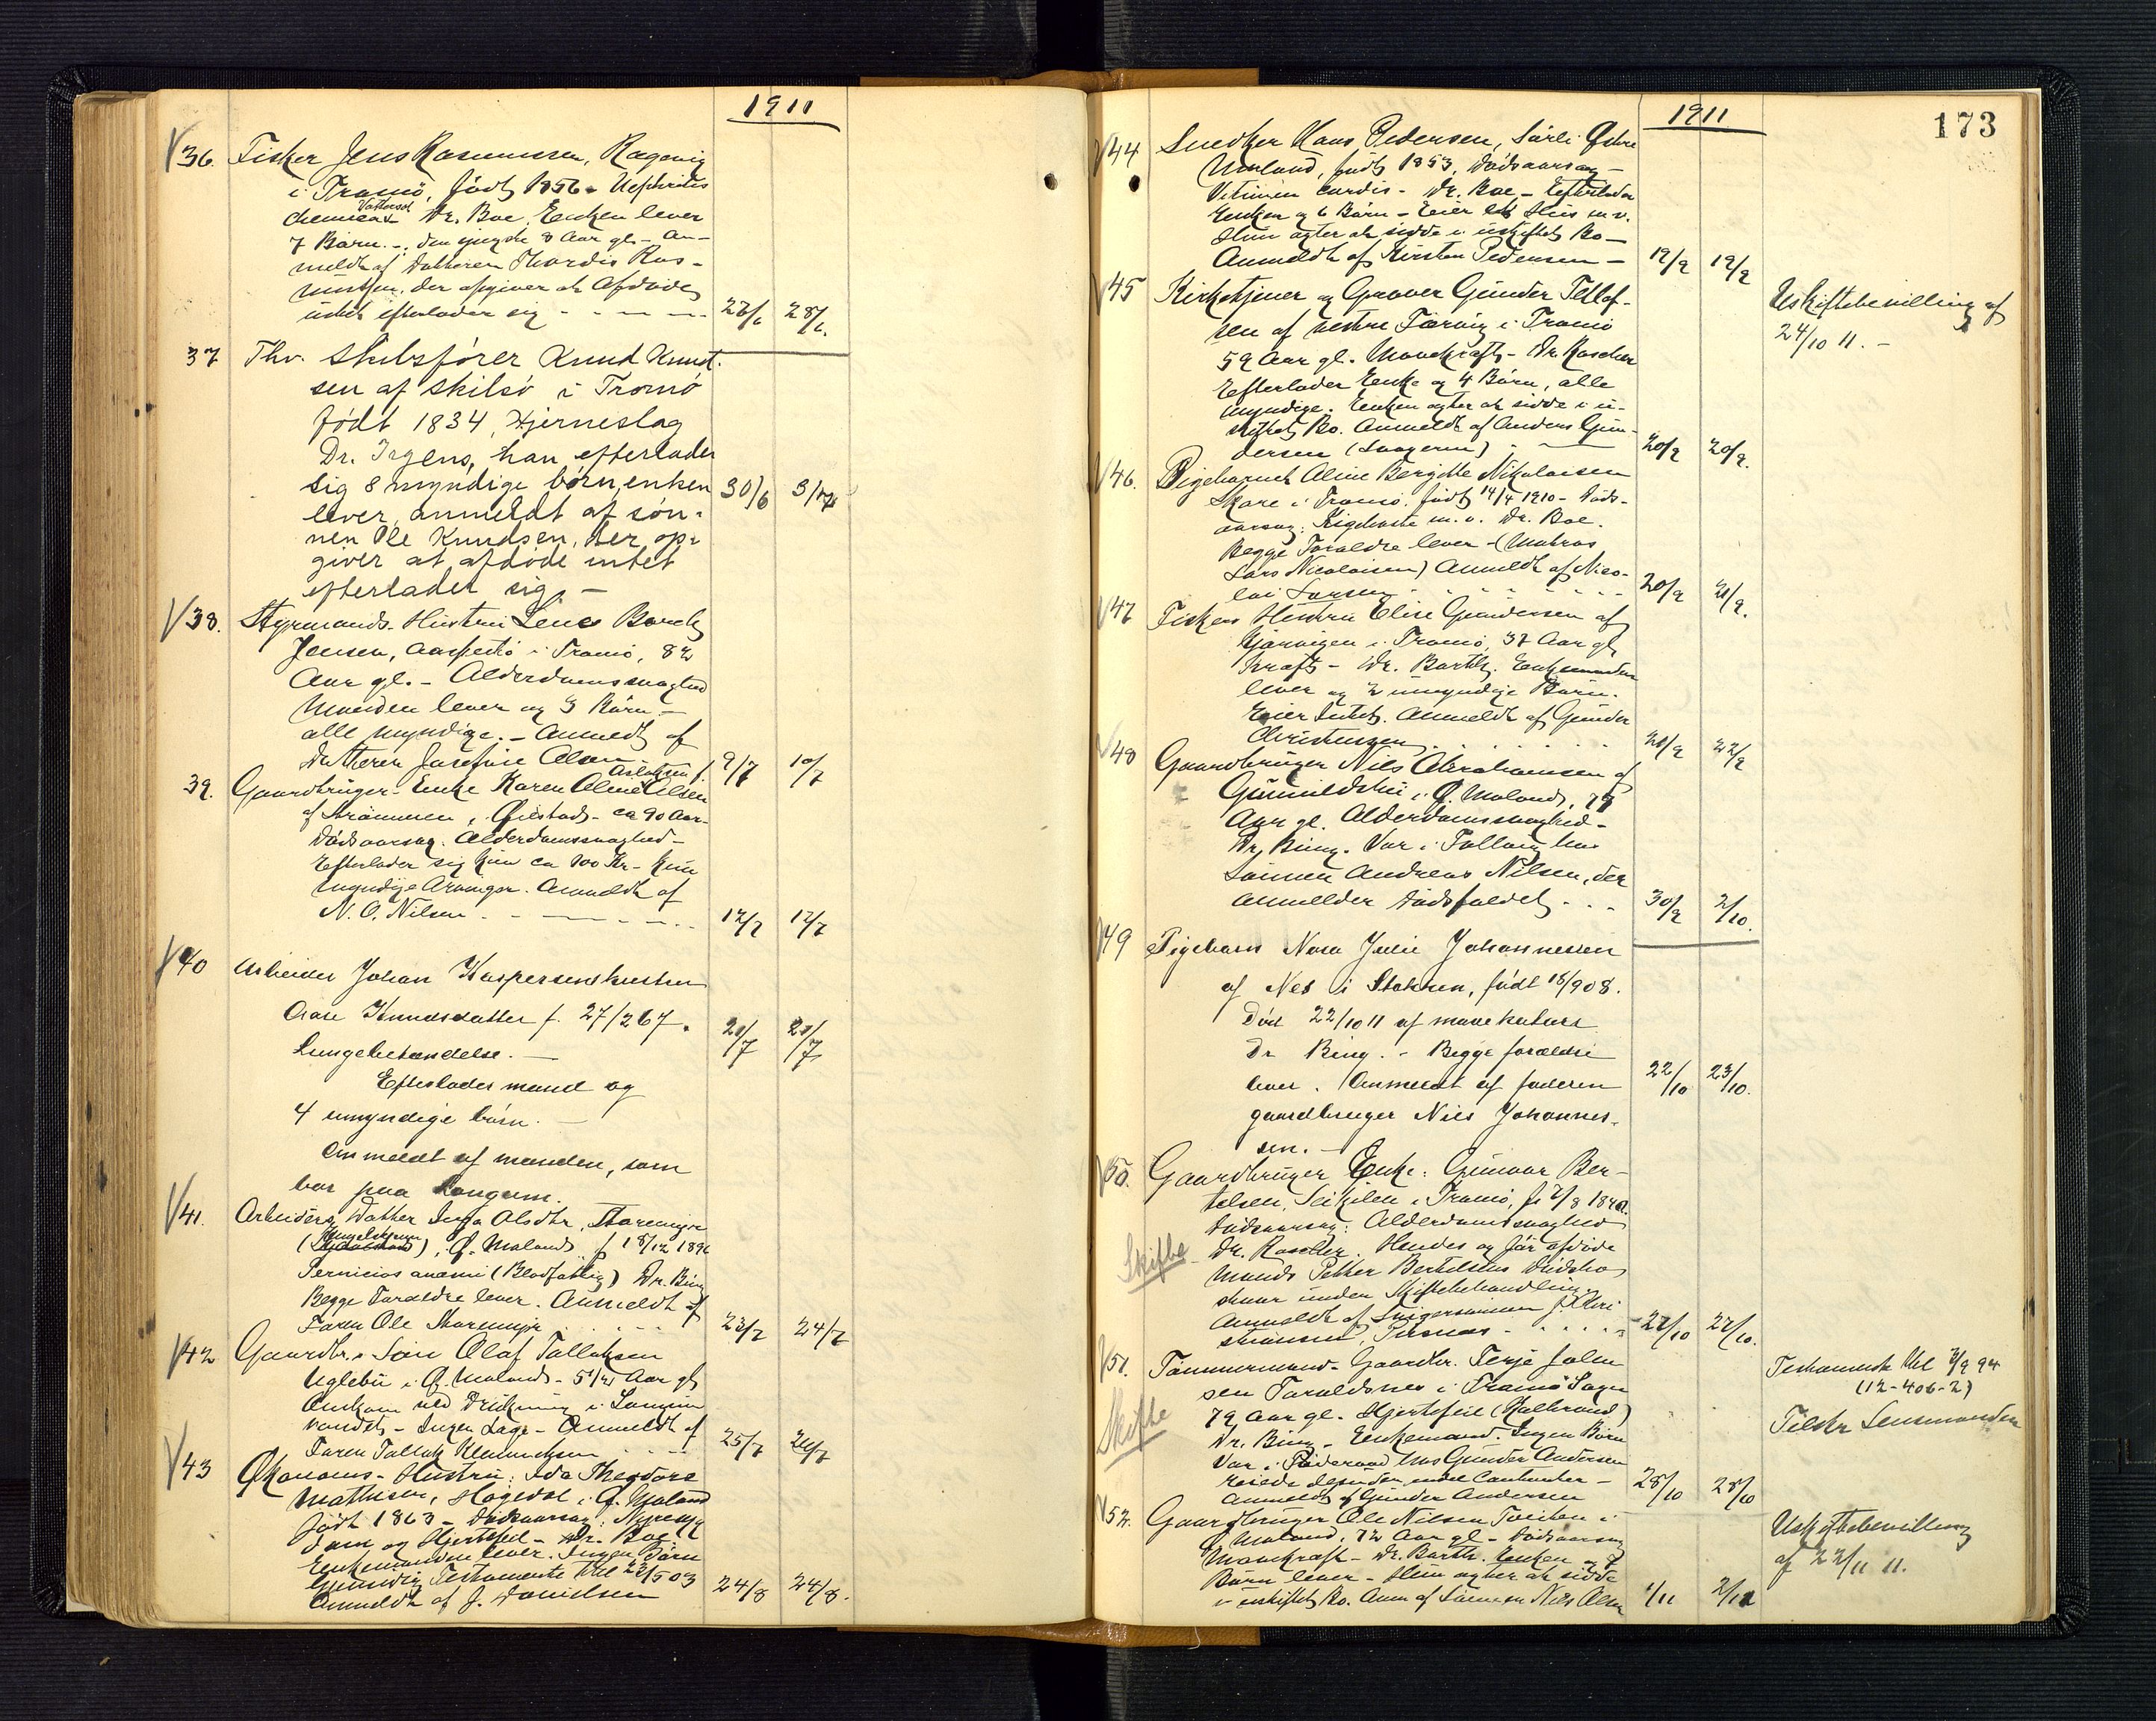 1911
36. Fisker Jens Rasmussen, Ragevig
i Tromö, födt 1856 - Nephritis
Vattersot Dr. Boe. Enken lever
7 Börn. - den yngste 8 Aar gl. - An-
meldt af Datteren Thordis Ras-
mussen, der opgiver at Afdöde
intet efterlader sig - - - - 27/6 28/6.
37 Fhv. Skibsförer Knud Knud-
sen af Skilsö i Tromö
födt 1834, Hjerneslag
Dr. Irgens, han efterlader
sig 8 myndige börn, enken 30/6 3/7
lever, anmeldt af søn-
nen Ole Knudsen, der op-
giver at afdöde intet
efterlader sig. -
38. Styrmands-Hustru Lene
Jensen, i Tromö, 82
Aar gl. - Alderdomssvaghed
Manden lever og 3 Börn -
alle myndige. - Anmeldt af
Datteren Josefine Olsen 9/7 10/7
39. Gaardbruger-Enke Karen Oline Olsen
Aslaksen
af Strömmen, Öiestad - ca 90 Aar -
Dödsaarsag: Alderdomssvaghed -
Efterlader sig kun ca 100 Kr. - Kun
myndige Arvinger. Anmeldt af
N. O. Nilsen - - - 12/7 12/7
40 Arbeider Johan Kaspersens hustru
Aase Knudsdatter f. 27/2 67. 20/7 20/7
Lungebetændelse. -
Efterlader mand og
4 umyndige börn. -
Anmeldt af manden, som
bor paa Longum.
41. Arbeiders Datter Inga Olsdtr,
(Engelskjøn), Ö. Moland f 18/12 1896
Pernicios anæmi (Blodfattig) Dr. Bing
Begge Foraldre lever. Anmeldt af
Faren Ole 23/7 24/7
42 Gaardbr.s Sön Olaf Tallaksen
Uglebu i Ö. Moland - 5 1/2 Aar gl.
Omkom ved Drukning i Longum
vandet - Ingen Læge - Anmeldt af
Faren Tallak 25/7 26/7
43 Økonoms-Hustru: Ida Theodora
Mathisen, Hogedal i Ö. Moland
födt 1863 - Dödsaarsag: Nyresyg
dom og Hjertefeil - Dr. Boe
Enkemanden lever. Ingen Börn
Gjensidig Testamente thl 22/5 03
Anmeldt af J. Danielsen 24/8 24/8.
173
1911
44 Snedker Hans Pedersen, Østre
Moland, födt 1853, Dödsaarsag -
Vitium cordis - Dr. Boe - Efterlader
Enken og 6 Börn - Eier et Hus m.v.
Hun agter at sidde i uskiftet Bo -
Anmeldt af Kirsten Pedersen - 19/9 19/9
45 Kirketjener og Graver Gunder Tellef-
sen af vestre Færvig i Tromö
59 Aar gl. Mavekræft - Dr. Roscher
Efterlader Enke og 4 Börn, alle
myndige. Enken agter at sidde i u-
skiftet Bo. Anmeldt af Anders Gun-
dersen (Svogeren) 20/9 20/9.
Uskiftebevilling af
24/10 11. -
46. Pigebarnet Aline Bergitte Nikolaisen
Skare i Tromö. Födt 14/4 1910 - Döds-
aarsag: Kighoste m. v. Dr. Boe.
Begge Foraldre lever - (Matros
Lars Nicolaisen) Anmeldt af Nico-
lai Larsen 20/9 21/9.
47 Fiskers Hustru Elise Gundersen af
i Tromö, 37 Aar gl.
Kræft - Dr. Barth. Enkemanden
lever og 2 umyndige Börn.
Eier Intet. Anmeldt af Gunder
Christensen 21/9 22/9
48 Gaardbruger Nils Abrahamsen af
i Ö. Moland, 79
Aar gl. Alderdomssvaghed -
Dr. Bing. Var i Follaug hos
Sönnen Andreas Nilsen, der
anmelder Dödsfaldet - - - 30/9 2/10.
49 Pigebarn Nora Julie Johannessen
af Nes i Stokken, födt 18/9 08.
Död 22/10 11 af mavekatarr
Dr Bing. - Begge forældre
lever. Anmeldt af faderen 22/10 23/10.
gaardbruger Niels Johannes-
sen. -
50. Gaardbruger Enke: Gunvor Ber-
telsen, i Tromö, f. 7/8 1840.
Dödsaarsag: Alderdomssvaghed
Skifte
Dr. Roscher. Hendes og før afdöde
Mands Petter Bertelsens Dödsbo
staar under Skiftebehandling
Anmeldt af Svigersönnen J. Chri
stiansen, Pusnes - - - 27/10 27/10.
51. Tömmermand-Gaardbr. Terje Salve
sen Taraldsnes i Tromö Sogn
Skifte
79 Aar gl. Hjertefeil (Kolbrand)
Dr. Bing - Enkemand. Ingen Börn
Var i Föderaad hos Gunder Andersen
Anmeldt af Gunder Andersen 28/10 28/10
Testament thl 3/9 94
(12-406-2)
Tilstr Lensmanden
52. Gaardbruger Ole Nilsen Tveiten i
Ö. Moland, 72 Aar gl - Dödsaarsag
Mavekræft - Dr. Barth. Enken og 7
Börn lever - Hun agter at sidde
i uskiftet Bo. Anm af Sönnen Nils Olsen 1/11 2/11
Uskiftebevilling
af 22/11 11.